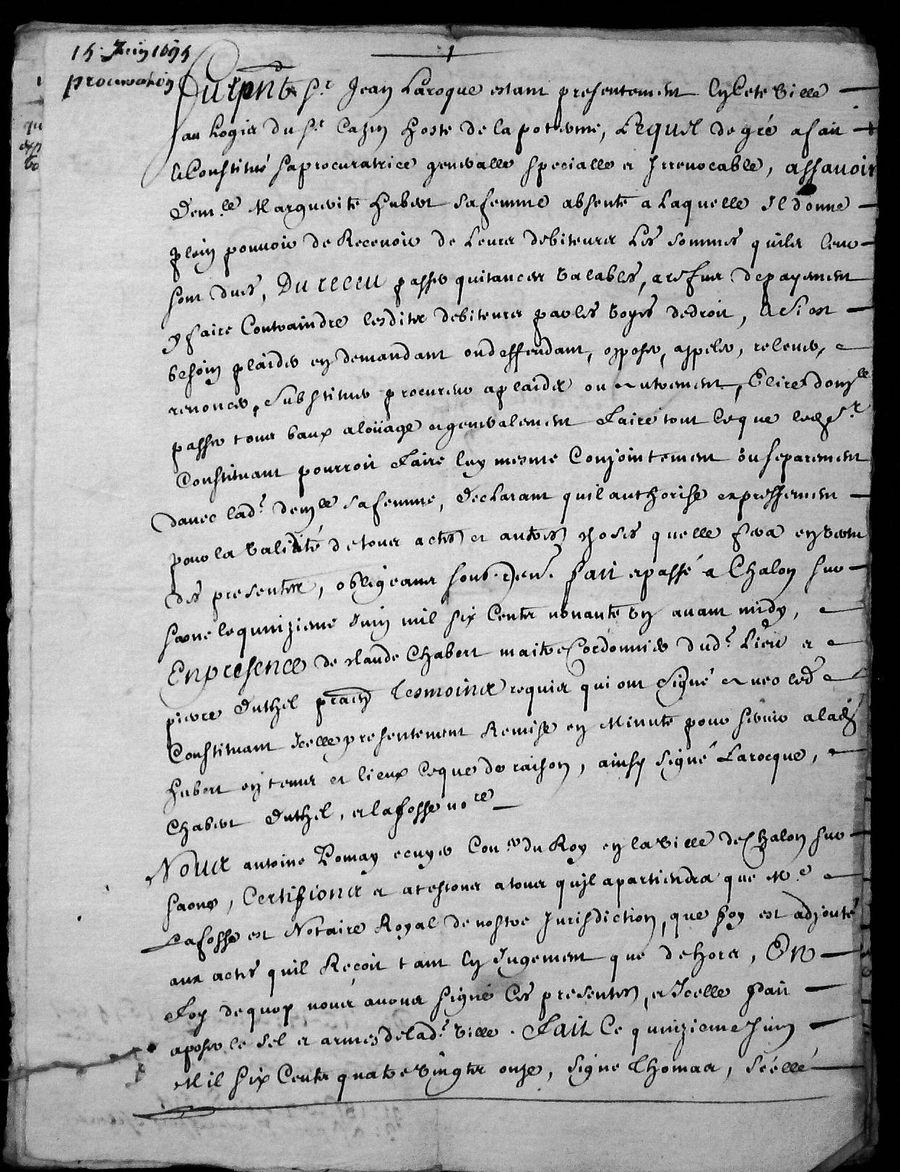 15 Juin 1691
procuration
1
Fut pnt Sr Jean Laroque estant presentement en cete ville
au logis du Sr Cazin hoste de la poterne, Lequel de gré a fait
& Constitué sa procuratrice generalle specialle et Irrevocable, assavoir
Demlle Marguerite hubert sa femme absente a Laquelle Il donne
plein pouvoir de Recevoir de Leurs debiteurs Les sommes quils leur
sont dues, Du receu passer quitances valables, a refus de payement
y faire Contraindre lesdits debiteurs par les voyes de droit, & si est
besoin plaider en demandant ou deffendant, opposer, appeler, relever,
renoncer, substituer procureur a plaider ou autrement, Elire domlle
passer tous baux a loüage et generalement faire tout ce que led Sr
Constituant pourroit faire luy mesme Conjointement ou separement
davec lad. demlle sa femme, declarant quil authorise expressement
pour la validité de tous actes et autres choses quelle fera en vertu
des presentes, obligeant sous. Renc. fait et passé a Chalon sur
saone le quinzieme Juin mil six Cents nonante un avant midy,
En presence de claude Chabert maitre Cordonnier dud. Lieu et
pierre Duthel prañ Tesmoins requis qui ont signé avec led
Constituant Icelle presentement Remise en Minute pour servir a lad
hubert en tems et lieux ce que de raison, ainsy signé Larocque,
Chabert Duthel, et lafosse nore
Nous antoine Pomay ecuyer Conser du Roy en la ville de Chalon sur
saone, Certifions et attestons a tous qu'il apartiendra que Me
Lafosse est Notaire Royal de nostre Jurisdiction, que foy est adjoutée
aux actes quil Reçoit tant en Jugement que dehors, En
foy de quoy nous avons signé Ces presentes, et a Icelle fait
aposer le sel et armes de lad. ville. Fait Ce quinzieme Juin
Mil six Cents quatre vingts onze, signé Thomas, scellé